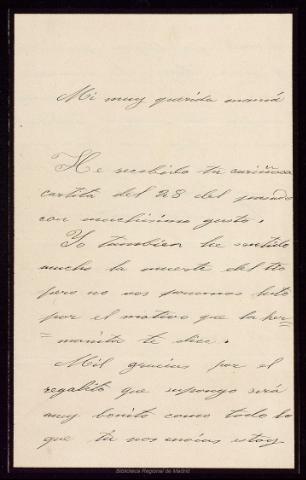 Mi muy querida mamá
He recibido tu cariñosa
cartita del 28 del pasado
con muchisimo gusto.
Yo tambien he sentido
mucho la muerte del tio
pero no nos ponemos luto
por el motivo que la her=
=manita te dice.
Mil gracias por el
regalito que supongo será
muy bonito como todo lo
que tú nos envias estoy
Biblioteca Regional de Madrid